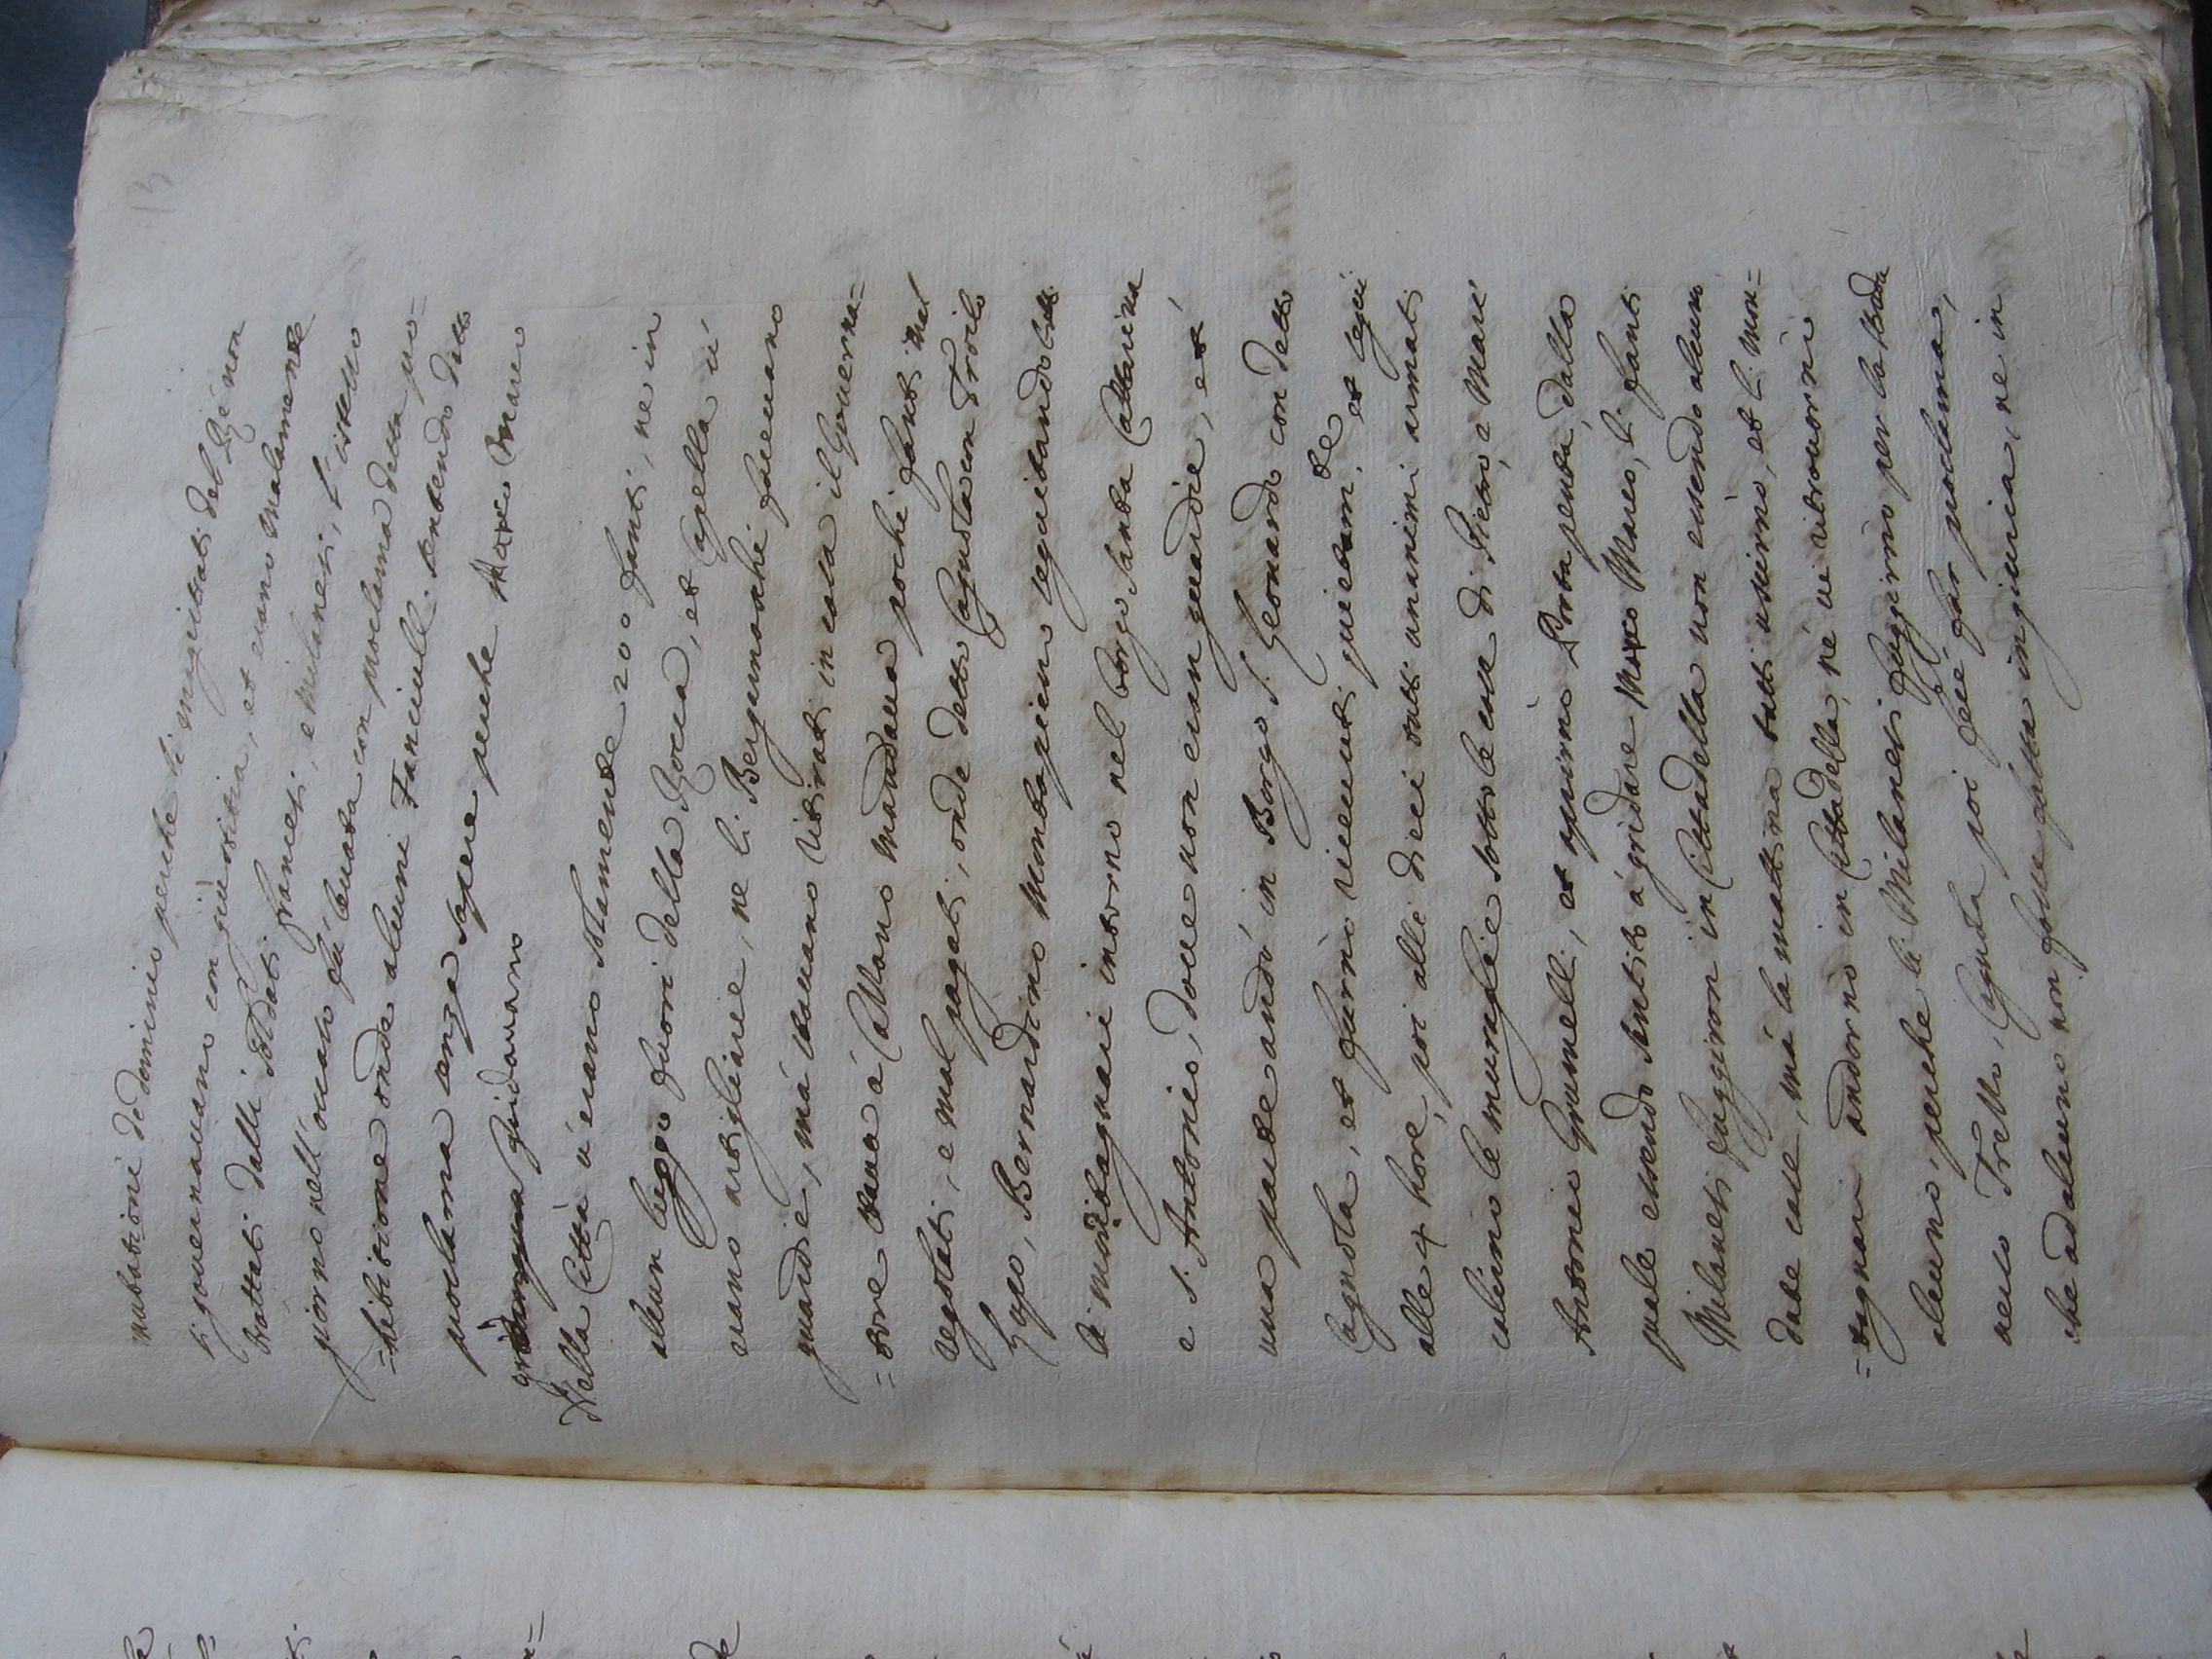 mutationi de dominio perche li magistrati del Rè non
si governavano con giustitia, et erano malamente
trattati dalli soldati francesi, e Milanesi, l'istesso
giorno nell'occaso fù levata con proclama detta pro=
=hibitione onde alcuni Fanciulli sentendo detto
proclama senza sapere perche Marco Marco
gridavano
Nella Città v'erano solamente 200 fanti, ne in
alcun luogo fuori della Rocca, et Capella v'
erano artiglierie, ne li Bergamaschi facevano
guardie, mà stavano ritirati in casa il Governa=
=tore stava a Cassano mandava pochi fanti mal
regolati, e mal pagati, onde detto Cagnola con Troilo
Lupo, Bernardino
li montagnari intorno nel borgo Santa Cattarina
e S. Antonio, dove non eran guardie, et
una parte andò in Borgo S. Leonardo con detto
Cagnola, et furno ricevuti quietam.te et
alle 4 hore, poi alle dieci tutti unanimi armati
salirno le muraglie sotto le case di Pietro, e Marc'
Antonio Grumelli, et aprirno Porta penta, dalla
quale essendo sentito à gridare Marco Marco, li fanti
Milanesi fuggiron in Cittadella non essendo alcuno
dalle case, mà la mattina tutti uscirno, et li Mon=
=tagnari andorno in Cittadella, nè vi ritrovorno
alcuno, perche li Milanesi fuggirno per la strada
verso Trezzo, Cagnola poi fece far proclama,
che ad alcuno non fosse fatta ingiuria, ne in